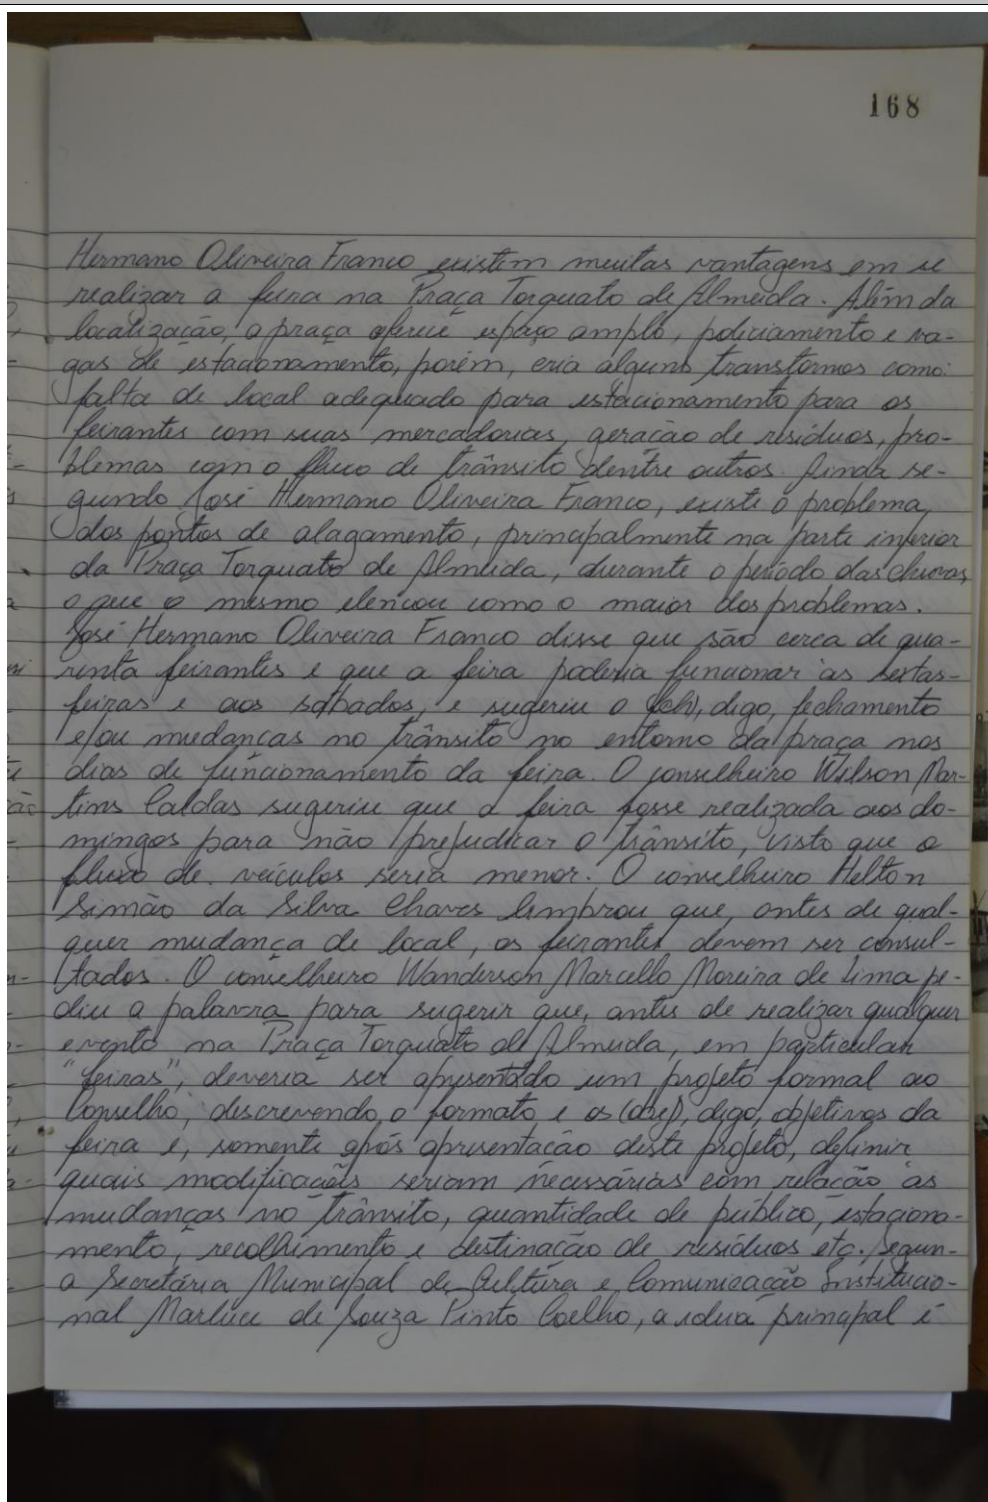 168
Hermano Oliveira Franco existem muitas vantagens em se
realizar a feira na Praça Torquato de Almeida. Além da
localização, a praça oferece espaço amplo, policiamento e va-
gas de estacionamento, porém, cria alguns transtornos como:
falta de local adequado para estacionamento para os
feirantes com suas mercadorias, geração de resíduos, pro-
blemas com o fluxo de trânsito dentre outros. Ainda se-
gundo José Hermano Oliveira Franco, existe o problema
dos pontos de alagamento, principalmente na parte inferior
da Praça Torquato de Almeida, durante o período das chuvas
o que o mesmo elencou como o maior dos problemas.
José Hermano Oliveira Franco disse que são cerca de qua-
renta feirantes e que a feira poderia funcionar às sextas-
feiras e aos sábados, e sugeriu o (fch), digo, fechamento
e/ou mudanças no trânsito no entorno da praça nos
dias de funcionamento da feira. O conselheiro Wilson Mar-
tins Caldas sugeriu que a feira fosse realizada aos do-
mingos para não prejudicar o trânsito, visto que o
fluxo de veículos seria menor. O conselheiro Helton
Simão da Silva Chaves lembrou que, antes de qual-
quer mudança de local, os feirantes devem ser consul-
tados. O conselheiro Wanderson Marcello Moreira de Lima pe-
diu a palavra para sugerir que, antes de realizar qualquer
evento na Praça Torquato de Almeida, em particular
"feiras", deveria ser apresentado um projeto formal ao
Conselho, descrevendo o formato e os (obej), digo, objetivos da
feira e, somente após apresentação deste projeto, definir
quais modificações seriam necessárias com relação às
mudanças no trânsito, quantidade de público, estaciona-
mento, recolhimento e destinação de resíduos etc. Segun-
a Secretária Municipal de Cultura e Comunicação Institucio-
nal Marluce de Souza Pinto Coelho, a ideia principal é